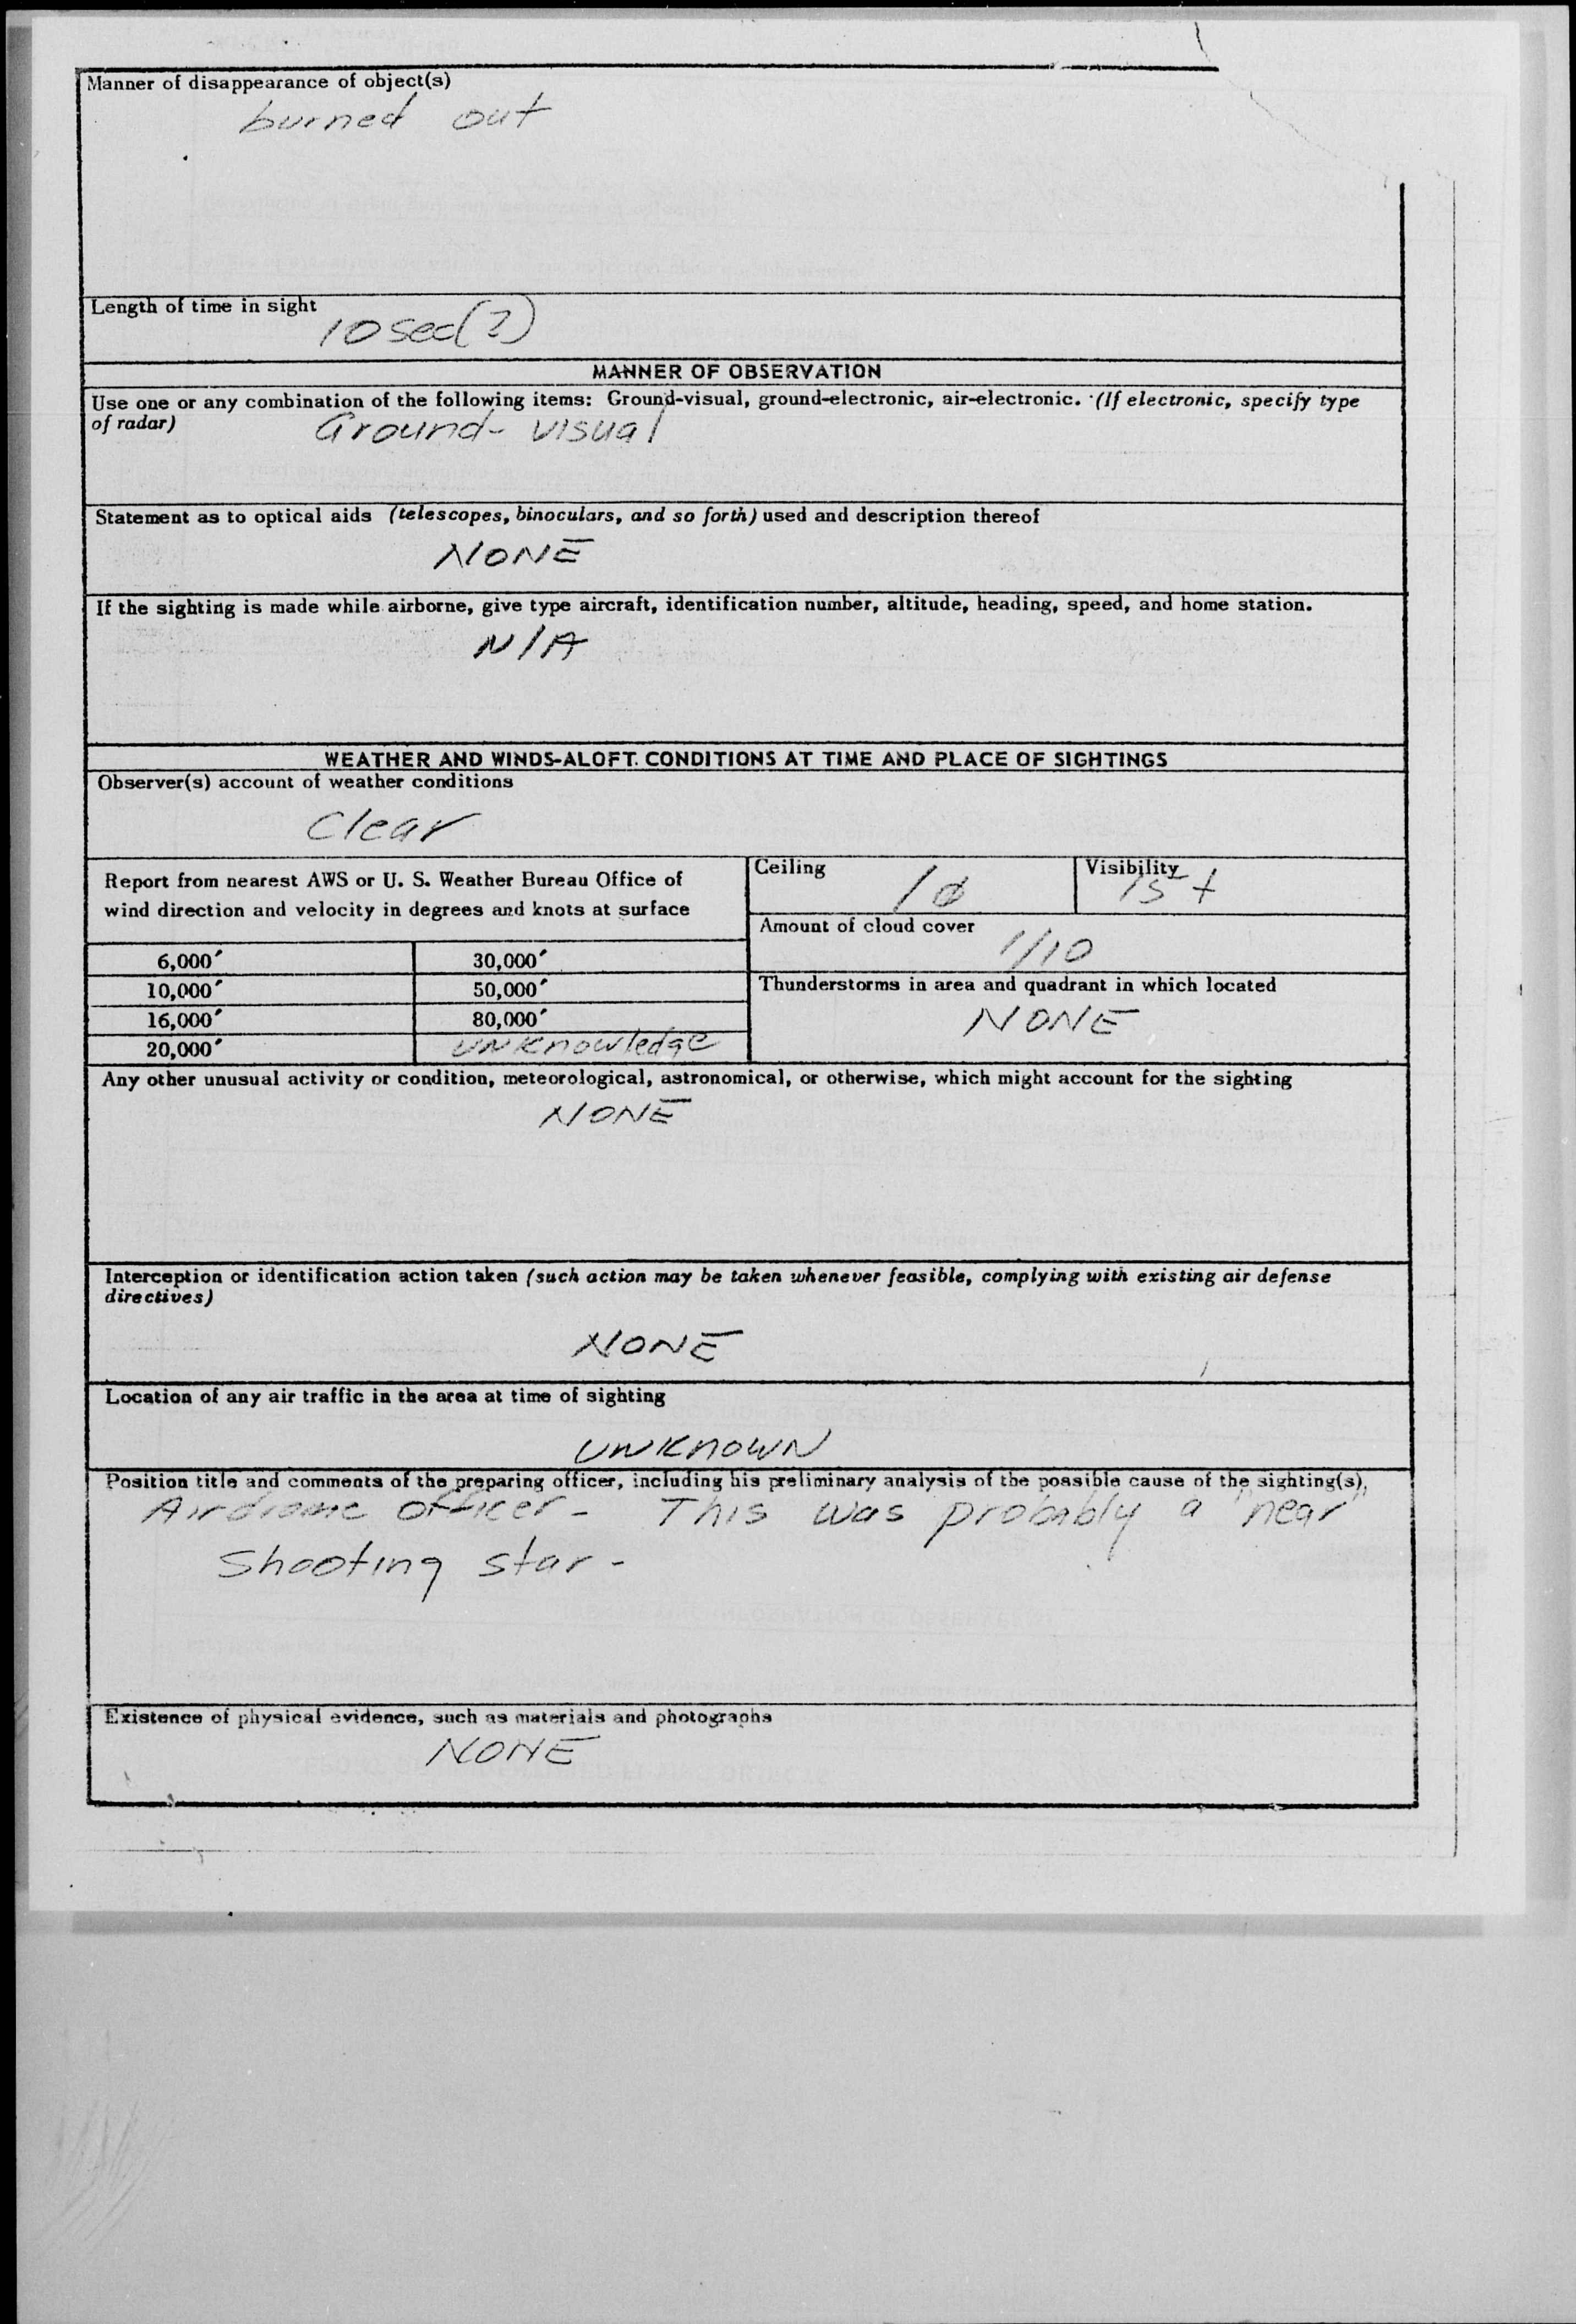 Manner of disappearance of object(s)
burned out
Length of time in sight
10 sec(?)
MANNER OF OBSERVATION
Use one or any combination of the following items: Ground-visual, ground-electronic, air-electronic. (If electronic, specify type
of radar)
Ground- visual
Statement as to optical aids (telescopes, binoculars, and so forth) used and description thereof
NONE
If the sighting is made while airborne, give type aircraft, identification number, altitude, heading, speed, and home station.
N/A
WEATHER AND WINDS-ALOFT. CONDITIONS AT TIME AND PLACE OF SIGHTINGS
Observer(s) account of weather conditions
Clear
Report from nearest AWS or U. S. Weather Bureau Office of
wind direction and velocity in degrees and knots at surface
Ceiling
Visibility
15+
Amount of cloud cover
1/10
6,000'
30,000'
10,000'
50,000'
16,000'
80,000'
20,000'
UNKnowledge
Thunderstorms in area and quadrant in which located
NONE
Any other unusual activity or condition, meteorological, astronomical, or otherwise, which might account for the sighting
NONE
Interception or identification action taken (such action may be taken whenever feasible, complying with existing air defense
directives)
NONE
Location of any air traffic in the area at time of sighting
UNKNOWN
Position title and comments of the preparing officer, including his preliminary analysis of the possible cause of the sighting(s),
Airdrome Officer - This was probably a "near"
Shooting star -
Existence of physical evidence, such as materials and photographs
NONE